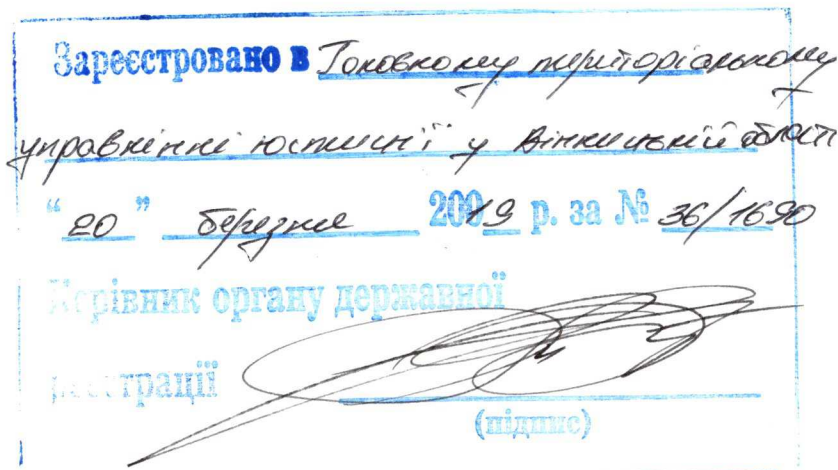 Зареєстровано в Головному територіальному
управлінні юстиції у Вінницькій області
“20” березня 2019 р. за № 36/1690
Керівник органу державної
реєстрації
(підпис)